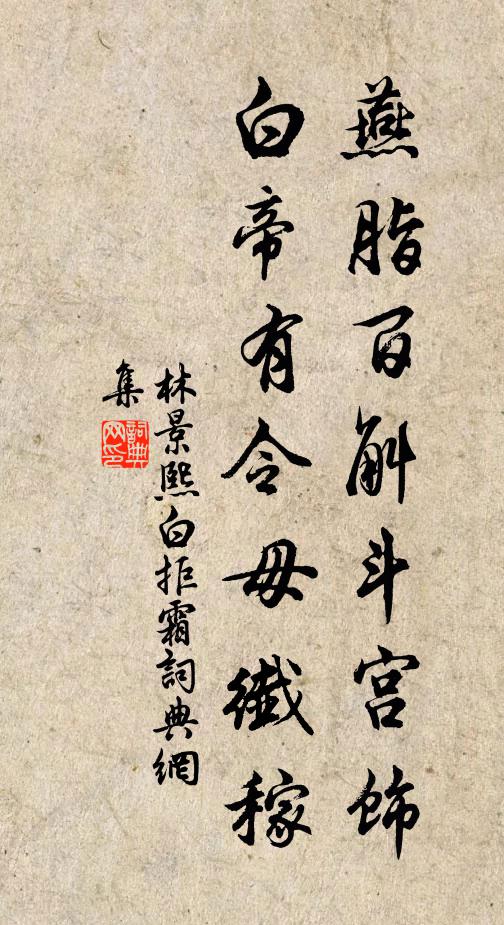 燕脂百斛斗宫饰
白帝有令毋纤稼
林景熙白拒霜詞典網
集
詞典
网印